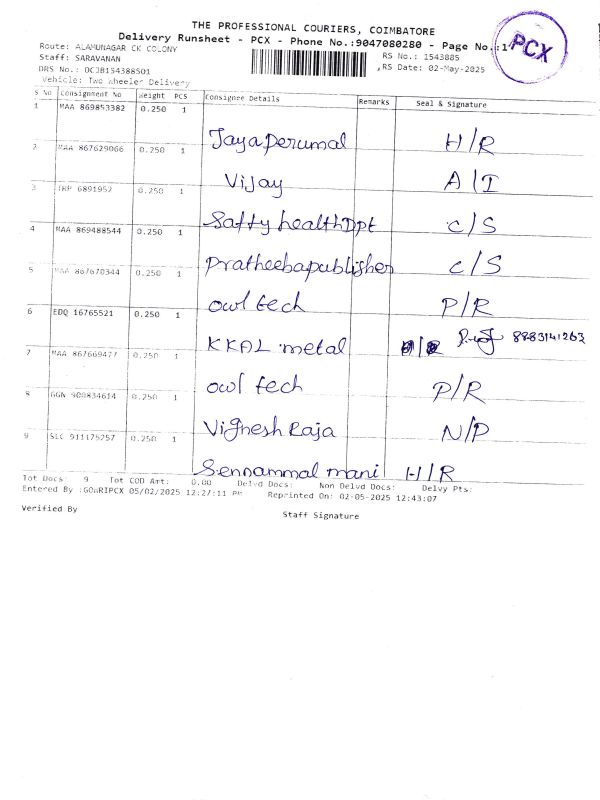 THE PROFESSIONAL COURIERS, COIMBATORE
Delivery Runsheet - PCX - Phone No.:9047080280 - Page No.:1
PCX
Route: ALAMUNAGAR CK COLONY
RS No.: 1543885
Staff: SARAVANAN
RS Date: 02-May-2025
DRS No.: DCJB154388501
Vehicle: Two Wheeler Delivery
S No Consignment No Weight PCS Consignee Details Remarks Seal & Signature
1 MAA 869853382 0.250 1
Jayaperumal H/R
2 MAA 867629066 0.250 1
Vijay A/I
3 TRP 6891952 0.250 1
Safty healthDpt C/S
4 MAA 869488544 0.250 1
Pratheebapublisher C/S
5 MAA 867670344 0.250 1
owl tech P/R
6 EDQ 16765521 0.250 1
KKAL metal 8883141263
7 MAA 867669477 0.250 1
owl tech P/R
8 GGN 900834614 0.250 1
Vighesh Raja N/P
9 SLC 911175257 0.250 1
Sennammal mani H/R
Tot Docs: 9 Tot COD Amt: 0.00 Delvd Docs: Non Delvd Docs: Delvy Pts:
Entered By :GOWRIPCX 05/02/2025 12:27:11 PM Reprinted On: 02-05-2025 12:43:07
Verified By
Staff Signature